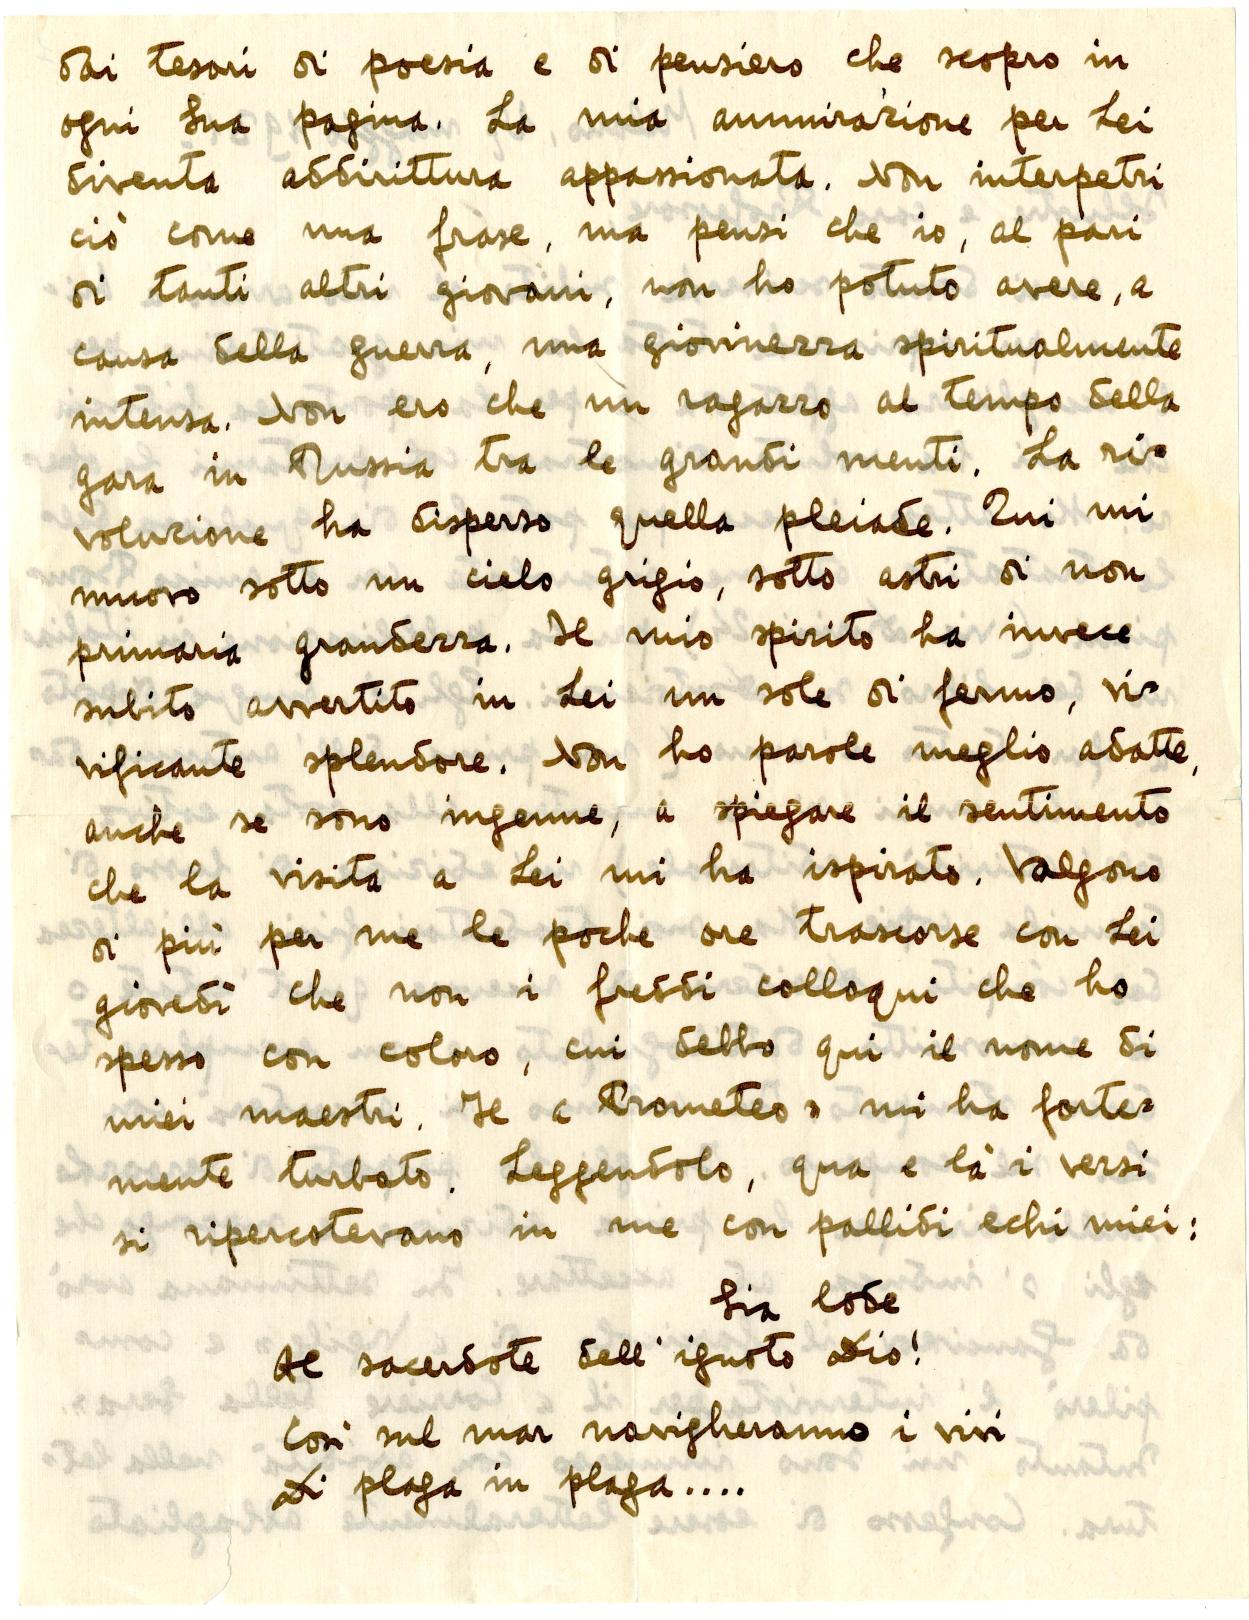 dai tesori di poesia e di pensiero che scopro in
ogni Sua pagina. La mia ammirazione per Lei
diventa addirittura appassionata. Non interpetri
ciò come una frase, ma pensi che io, al pari
di tanti altri giovani, non ho potuto avere, a
causa della guerra, una giovinezza spiritualmente
intensa. Non ero che un ragazzo al tempo della
gara in Russia tra le grandi menti. La ri=
voluzione ha disperso quella pleiade. Qui mi
muovo sotto un cielo grigio, sotto astri di non
primaria grandezza. Il mio spirito ha invece
subito avvertito in Lei un sole di fermo, vi=
vificante splendore. Non ho parole meglio adatte,
anche se sono ingenue, a spiegare il sentimento
che la visita a Lei mi ha ispirato. Valgono
di più per me le poche ore trascorse con Lei
giovedì che non i freddi colloqui che ho
spesso con coloro, cui debbo qui il nome di
miei maestri. Il « Prometeo » mi ha forte=
mente turbato. Leggendolo, qua e là i versi
si ripercotevano in me con pallidi echi miei:
Sia lode
Al sacerdote dell'ignoto Dio!
Così sul mar navigheranno i vivi
Di plaga in plaga....